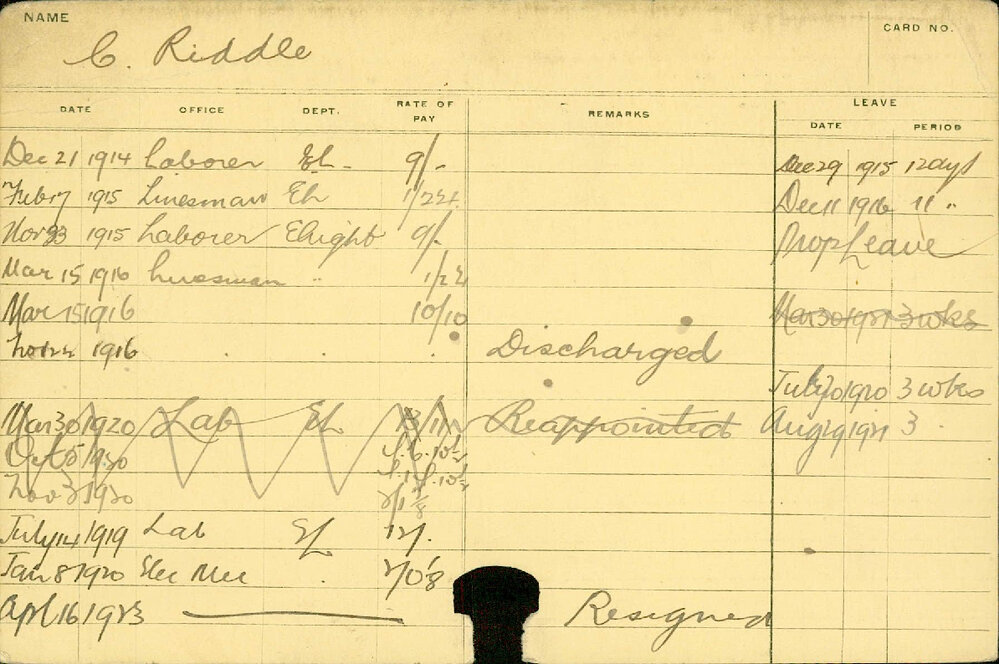 NAME
CARD NO.
C. Riddle
DATE OFFICE DEPT. RATE OF PAY REMARKS LEAVE
DATE PERIOD
Dec 21 1914 Laborer El. 9/- Dec 29 1915 12 days
Feb 17 1915 Linesman El 1/2¼ Dec 11 1916 11 "
Nov 23 1915 Laborer Elight 9/- Prop Leave
Mar 15 1916 Linesman " 1/2¼
Mar 15 1916 10/10 Mar 30 1921 3 wks
Nov 22 1916 Discharged
July 20 1920 3 wks
Mar 30 1920 Lab El Reappointed Aug 19 1921 3
Oct 5 1920
Nov 3 1920
July 14 1919 Lab El 12/-
Jan 8 1920 Elec Mec
Apl 16 1923 Resigned